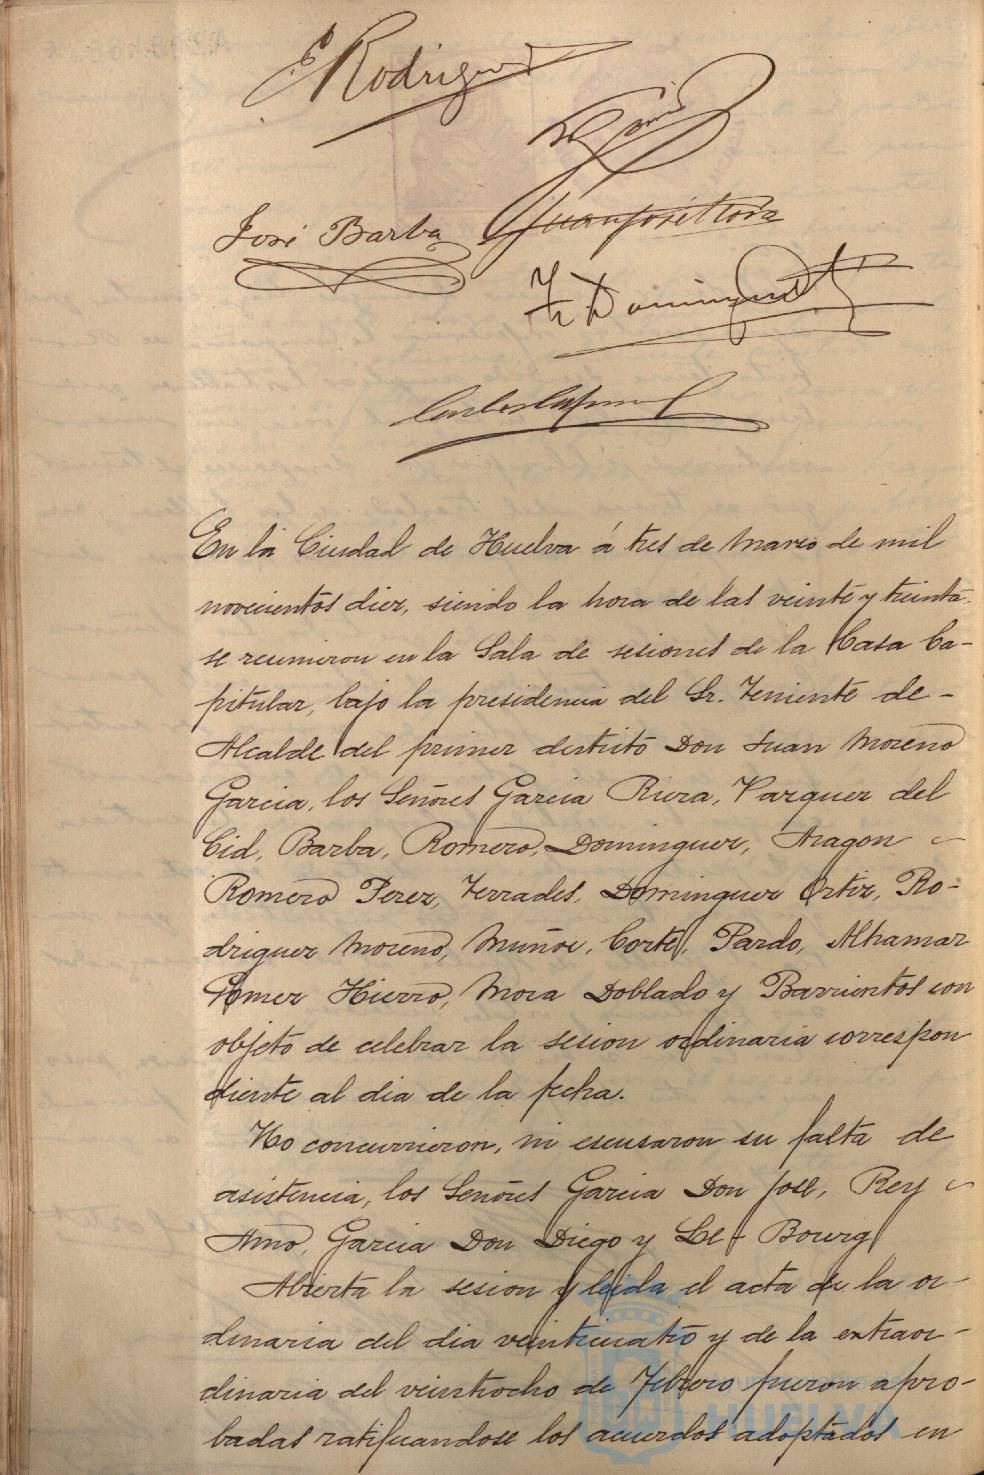 E Rodriguez
José Barba
Fr Dominguez
En la Ciudad de Huelva á tres de Marzo de mil
novecientos diez, siendo la hora de las veinte y treinta
se reunieron en la Sala de sesiones de la Casa Ca-
pitular, bajo la presidencia del Sr. Teniente de-
Alcalde del primer distrito Don Juan Moreno
Garcia, los Señores Garcia Riera, Vazquez del
Cid, Barba, Romero, Dominguez, Aragon
Romero Perez, Terrades, Dominguez Ortiz, Ro-
driguez Moreno, Muñoz, Cortés, Pardo, Alhamar
Gomez Hierro, Mora Doblado y Barrientos con
objeto de celebrar la sesion ordinaria correspon
diente al dia de la fecha.
No concurrieron, ni escusaron su falta de
asistencia, los Señores Garcia Don José, Rey
Amo, Garcia Don Diego y Le-Bourg
Abierta la sesion y leida el acta de la or-
dinaria del dia veinticuatro y de la extraor-
dinaria del veintiocho de Febrero fueron apro-
badas ratificandose los acuerdos adoptados en
HUELVA